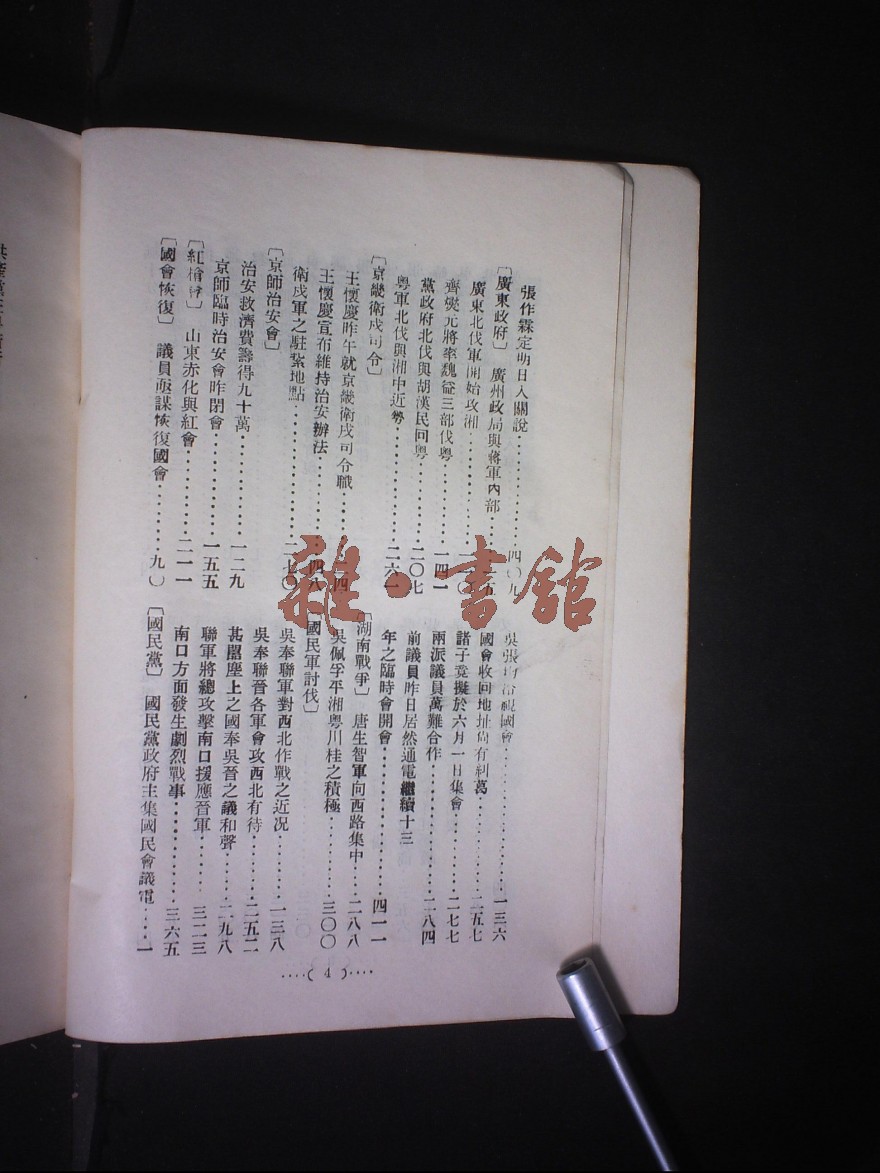 張作霖定明日入關說……四〇九
〔廣東政府〕 廣州政局與蔣軍內部……五
廣東北伐軍開始攻湘……〇
齊燮元將率魏益三部伐粵……一四一
黨政府北伐與胡漢民回粵……二〇七
粵軍北伐與湘中近勢……二六一
〔京畿衛戍司令〕
王懷慶昨午就京畿衛戍司令職……四
王懷慶宣布維持治安辦法……四八
衛戍軍之駐紮地點……七〇
〔京師治安會〕
治安救濟費籌得九十萬……一二九
京師臨時治安會昨閉會……一五五
〔紅槍會〕 山東赤化與紅會……二一一
〔國會恢復〕 議員亟謀恢復國會……九〇
吳張 國會……一三六
國會收回地址尚有糾葛……二五七
諸子竟擬於六月一日集會……二七七
兩派議員萬難合作……二八四
前議員昨日居然通電繼續十三
年之臨時會開會……四一一
〔湖南戰爭〕 唐生智軍向西路集中……二八八
吳佩孚平湘粵川桂之積極……三〇〇
〔國民軍討伐〕
吳奉聯軍對西北作戰之近況……一三八
吳奉聯晉各軍會攻西北有待……二五二
甚囂塵上之國奉吳晉之議和聲……二九八
聯軍將總攻擊南口援應晉軍……三二三
南口方面發生劇烈戰事……三六五
〔國民黨〕 國民黨政府主集國民會議電……一
……(4)……
雜·書館